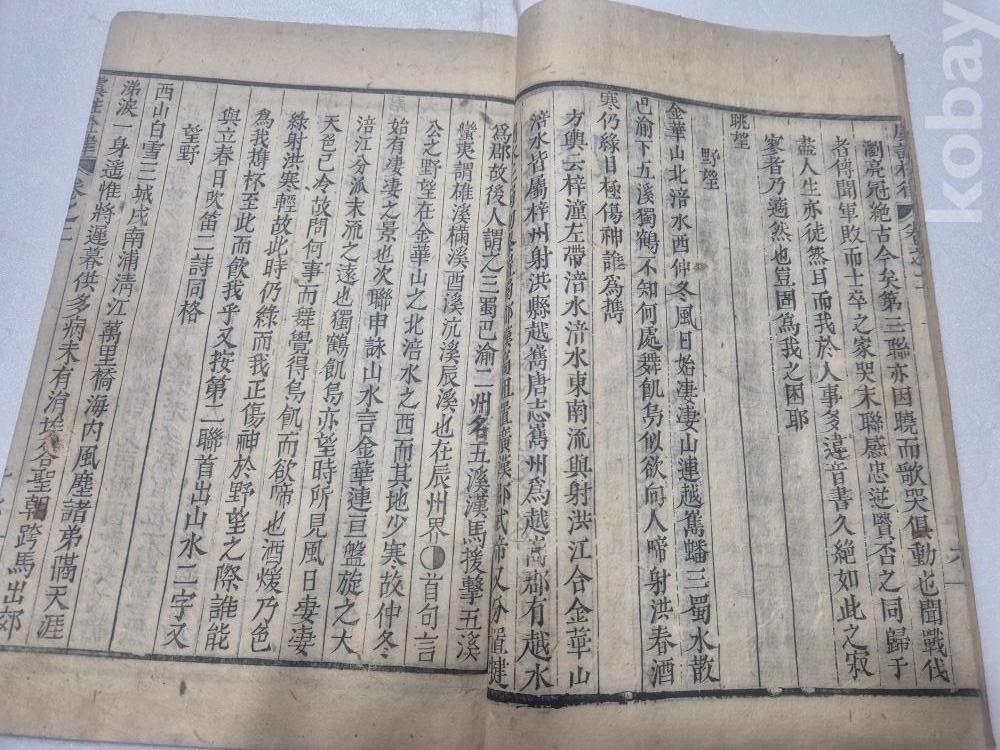 瀏亮冠絶古今矣第三聯亦因曉而歌哭俱動也聞戰伐
者傳聞軍敗而士卒之家哭末聯感忠逆賢否之同歸于
盡人生亦徒然耳而我於人事多違音書久絶如此之寂
寥者乃適然也豈固爲我之困耶
眺望
野望
金華山北涪水西仲冬風日始淒淒山連越嶲蟠三蜀水散
巴渝下五溪獨鶴不知何處舞飢烏似欲向人啼射洪春酒
寒仍綠目極傷神誰爲攜
方輿云梓潼左帶涪水涪水東南流與射洪江合金華山
涪水皆屬梓州射洪縣越嶲唐志嶲州爲越嶲郡有越水
置犍
爲郡故後人謂之三蜀巴渝二州名五溪漢馬援擊五溪
蠻夷謂雄溪樠溪酉溪沅溪辰溪也在辰州界首句言
公之野望在金華山之北涪水之西而其地少寒故仲冬
始有淒淒之景也次聯申詠山水言金華連亘盤旋之大
涪江分派末流之遠也獨鶴飢烏亦望時所見風日淒淒
天色已冷故問何事而舞覺得烏飢而欲啼也酒煖乃色
綠射洪寒輕故此時仍綠而我正傷神於野望之際誰能
爲我攜杯至此而飲我乎又按第二聯首出山水二字又
與立春日吹笛二詩同格
望野
西山白雪三城戍南浦清江萬里橋海内風塵諸弟隔天涯
涕淚一身遥惟將遲暮供多病未有涓埃答聖朝跨馬出郊
卷之二
kobay